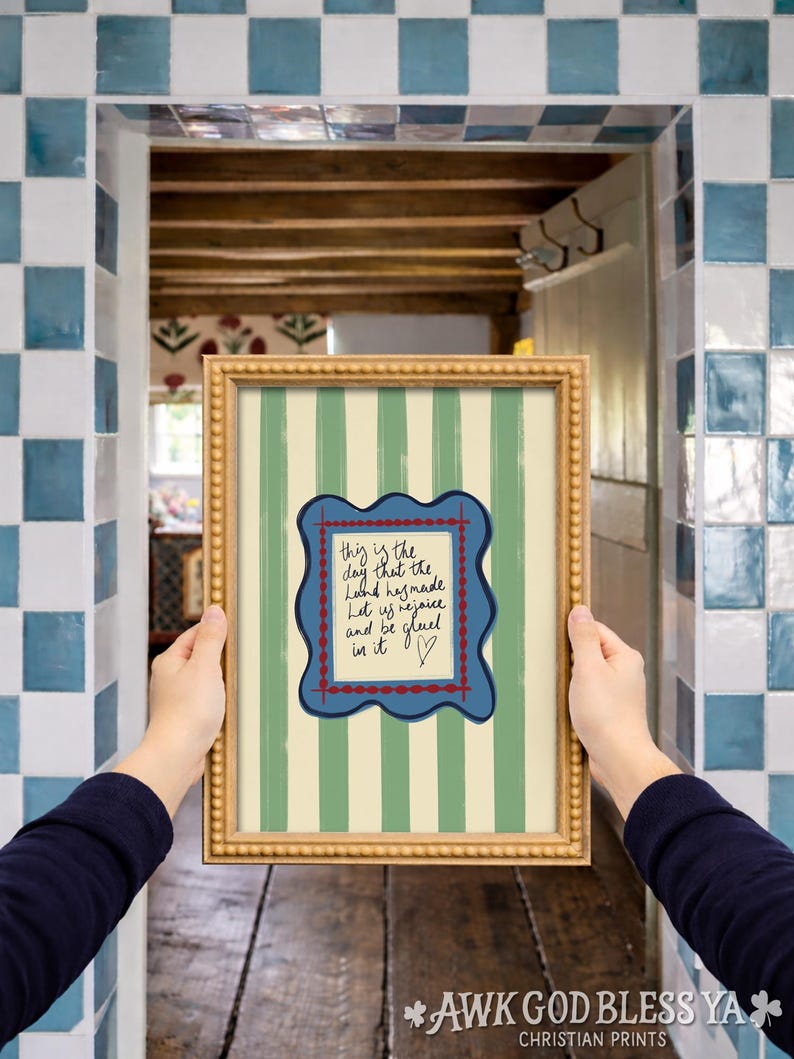 this is the
day that the
Lord has made
Let us rejoice
and be glad
in it
AWK GOD BLESS YA
CHRISTIAN PRINTS